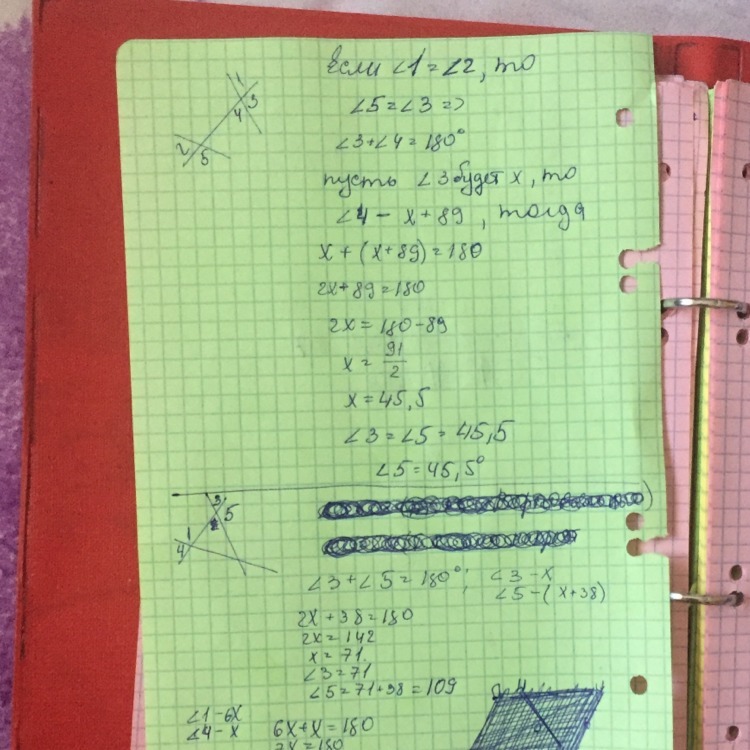 Если ∠1=∠2, то
1
3
4
2
5
∠5=∠3=>
∠3+∠4=180°
пусть ∠3 будет x, то
∠4 - x+89, тогда
x+(x+89)=180
2x+89=180
2x=180-89
x= 91/2
x=45,5
∠3=∠5=45,5
∠5=45,5°
3
5
1
4
∠3+∠5=180°; ∠3-x
∠5-(x+38)
2x+38=180
2x=142
x=71.
∠3=71
∠5=71+38=109
∠1-6x
∠4-x
6x+x=180
7x=180